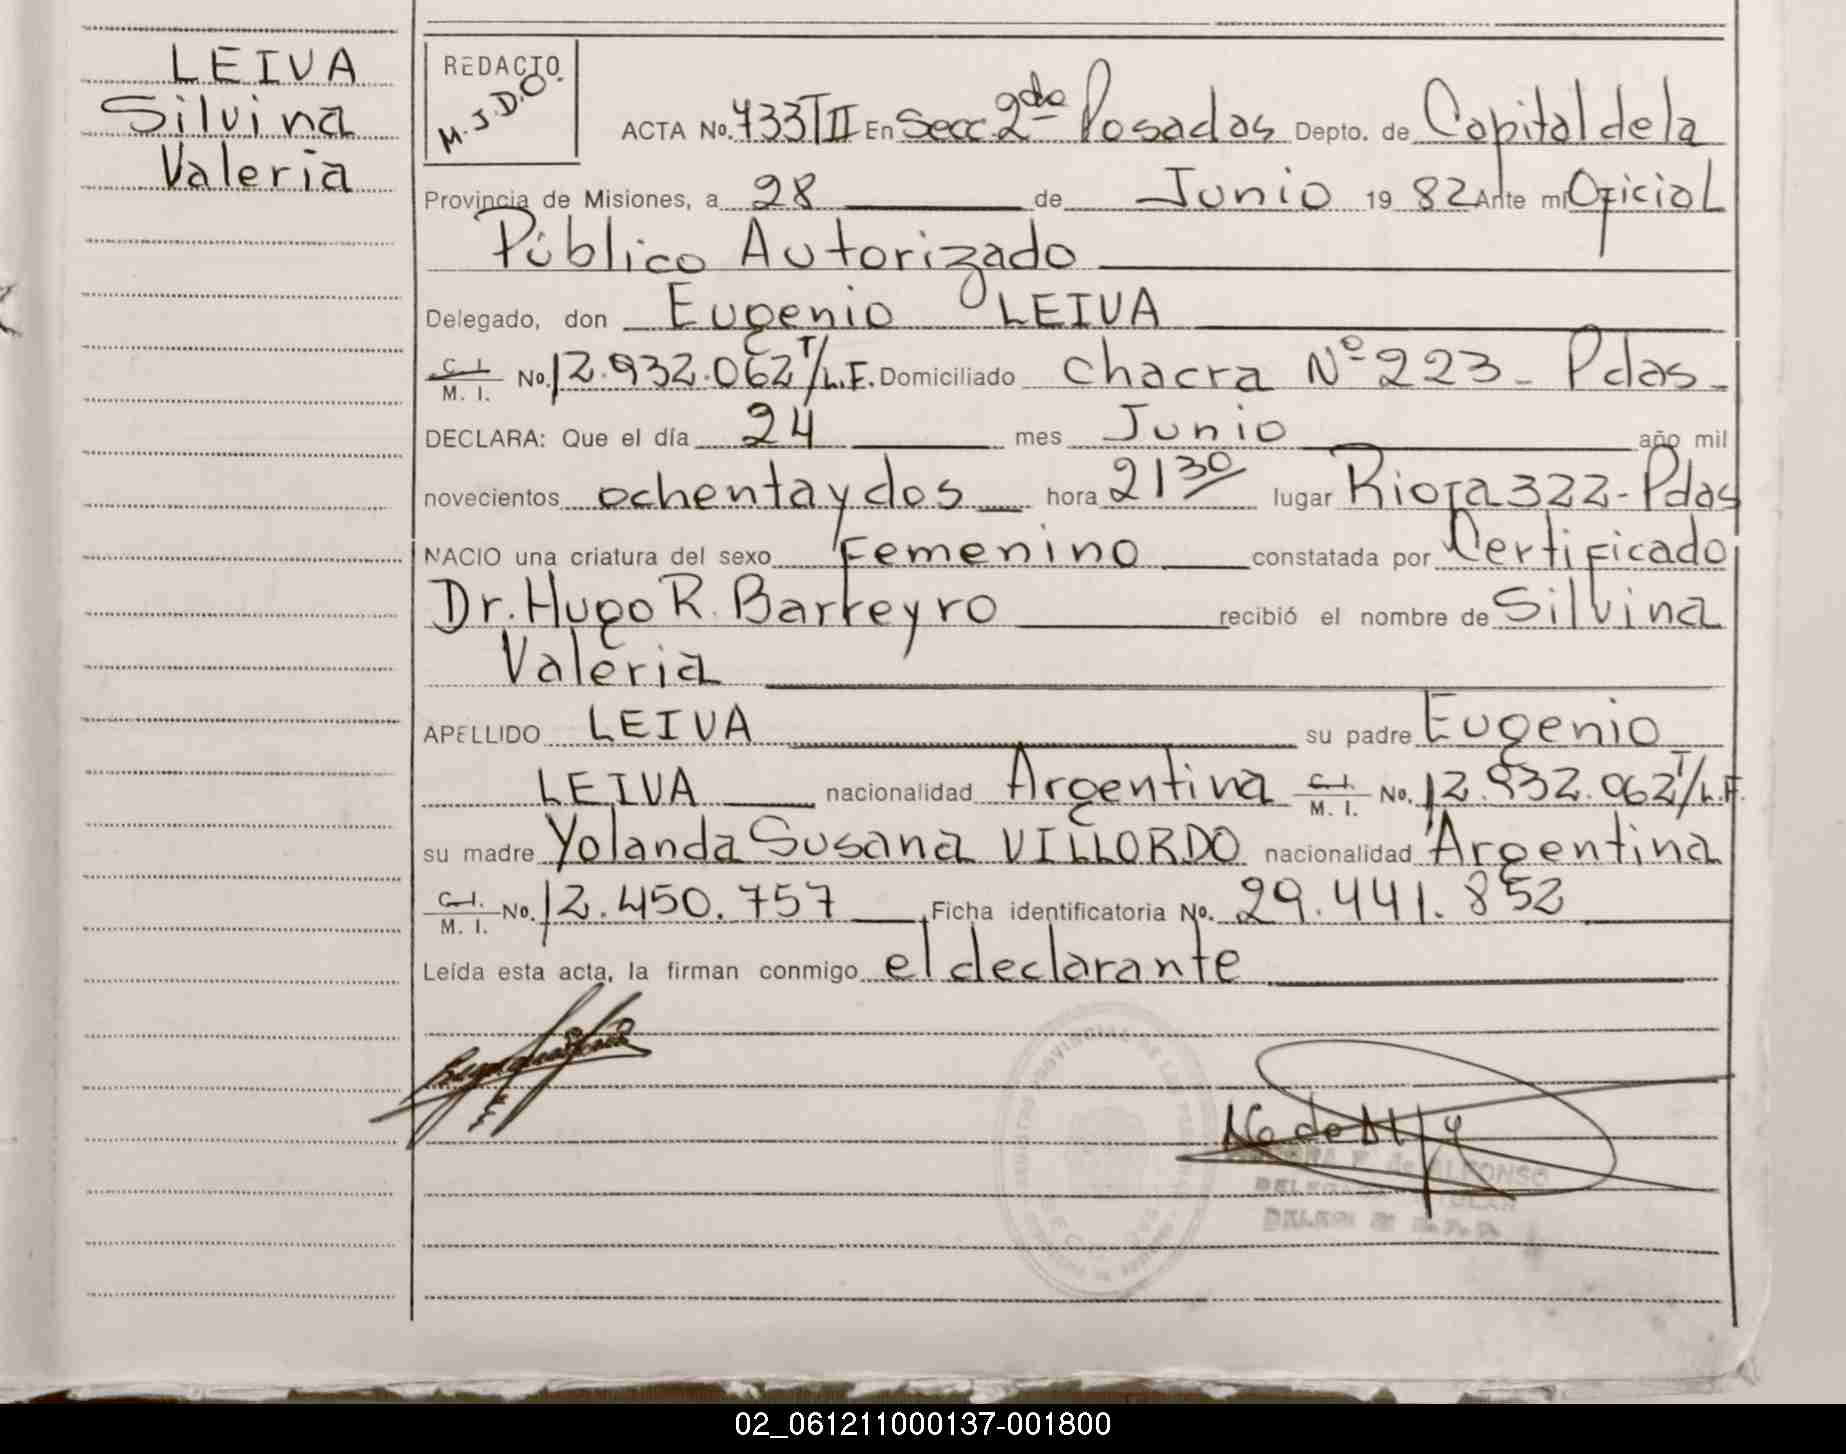 LEIVA
Silvina
Valeria
REDACTO
M.J.D.O.
ACTA No. 733 T II En Secc. 2da Posadas Depto. de Capital de la
Provincia de Misiones, a 28 de Junio 19 82 Ante mi Oficial
Público Autorizado
Delegado, don Eugenio LEIVA
C.I. M. I. No. 12.932.062 T/L.E. Domiciliado chacra Nº 223 - Pdas -
DECLARA: Que el día 24 mes Junio año mil
novecientos ochenta y dos hora 21 30 lugar Rioja 322 - Pdas
NACIO una criatura del sexo Femenino constatada por Certificado
Dr. Hugo R. Barreyro recibió el nombre de Silvina
Valeria
APELLIDO LEIVA su padre Eugenio
LEIVA nacionalidad Argentina C.I. M. I. No. 12.932.062 T/L.E.
su madre Yolanda Susana VILLORDO nacionalidad Argentina
C.I. M. I. No. 12.450.757 Ficha identificatoria No. 29.441.852
Leída esta acta, la firman conmigo el declarante
de ALFONSO
02_061211000137-001800